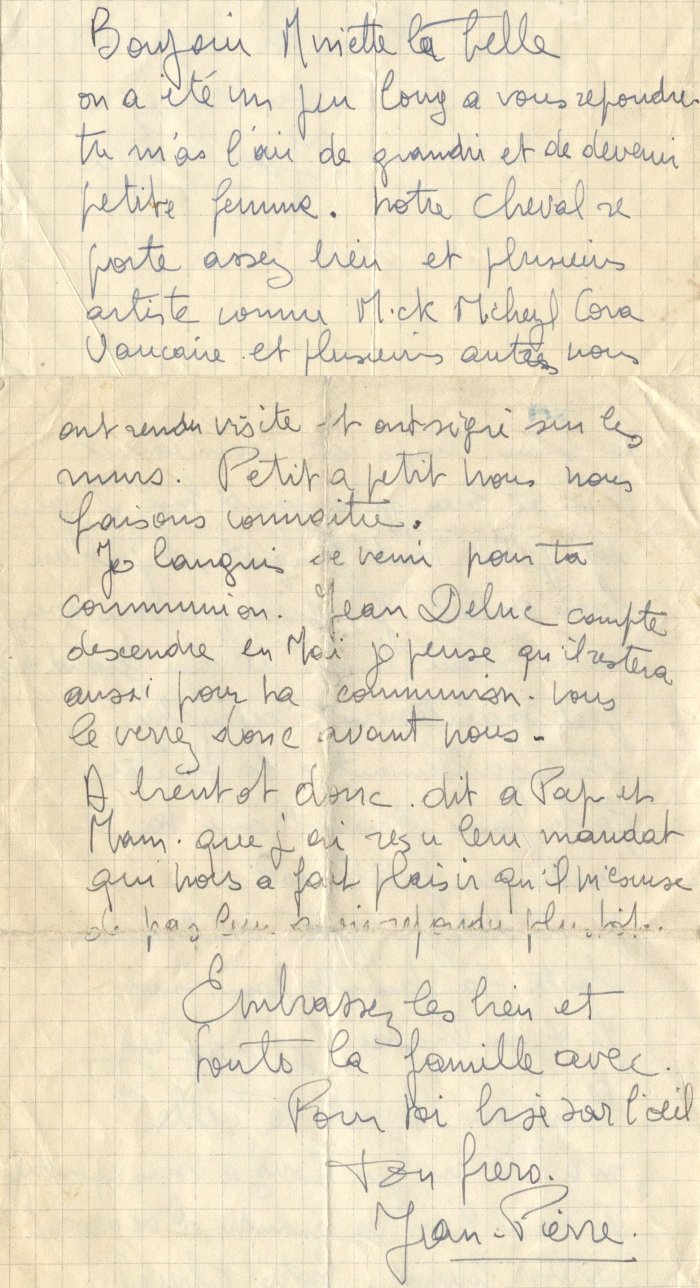 Bonjour Miniette la belle
on a été un peu long a vous repondre
tu m'as l'air de grandir et de devenir
petite femme. notre cheval se
porte assez bien et plusieurs
artiste comme Mick Micheyl Cora
Vaucaire et plusieurs autres nous
ont rendu visite et ont signé sur les
murs. Petit a petit nous nous
faisons connaitre.
Je languis de venir pour ta
communion. Jean Deluc compte
descendre en Mai j'pense qu'il restera
aussi pour ta communion. vous
le verrez donc avant nous.
A bientot donc. dit a Pap et
Mam. que j'ai reçu leur mandat
qui nous a fait plaisir qu'il m'excuse
de pas leur avoir repondu plus tôt.
Embrassez les bien et
toute la famille avec.
Pour toi bise sur l'œil
ton frero.
Jean-Pierre.